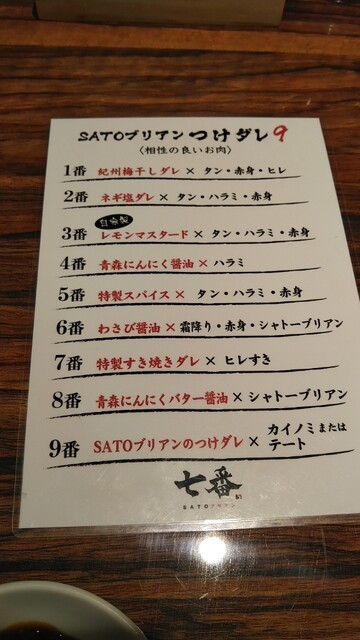 SATOブリアン つけダレ 9
〈相性の良いお肉〉
1番 紀州梅干しダレ × タン・赤身・ヒレ
2番 ネギ塩ダレ × タン・ハラミ・赤身
自家製
3番 レモンマスタード × タン・ハラミ・赤身
4番 青森にんにく醤油 × ハラミ
5番 特製スパイス × タン・ハラミ・赤身
6番 わさび醤油 × 霜降り・赤身・シャトーブリアン
7番 特製すき焼きダレ × ヒレすき
8番 青森にんにくバター醤油 × シャトーブリアン
9番 SATOブリアンのつけダレ × カイノミまたは
テート
七番
SATOブリアン